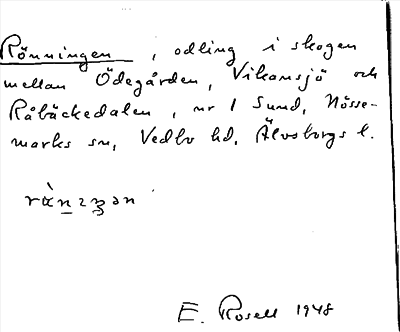 Rönningen, odling i skogen
mellan Ödegården, Vikansjö och
Råbäckedalen, nr 1 Sund, Nösse-
marks sn, Vedbo hd, Älvsborgs l.
E. Rosell 1948